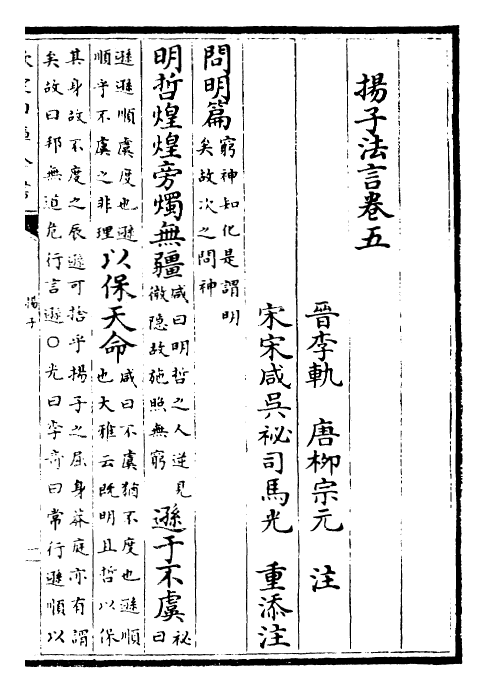 揚子法言卷五
晉李軌 唐柳宗元 注
宋宋咸吳祕司馬光 重添注
問明篇 窮神知化是謂明矣故次之問神
明哲煌煌旁燭無疆 咸曰明哲之人逆見微隱故施照無窮 遜于不虞 祕曰
遜遜順虞度也遜順乎不虞之非理 以保天命 咸曰不虞猶不度也遜順也大雅云既明且哲以保
其身故不度之辰遜可捨乎揚子之屈身莽庭亦有謂
矣故曰邦無道危行言遜〇光曰李奇曰常行遜順以
揚子
一